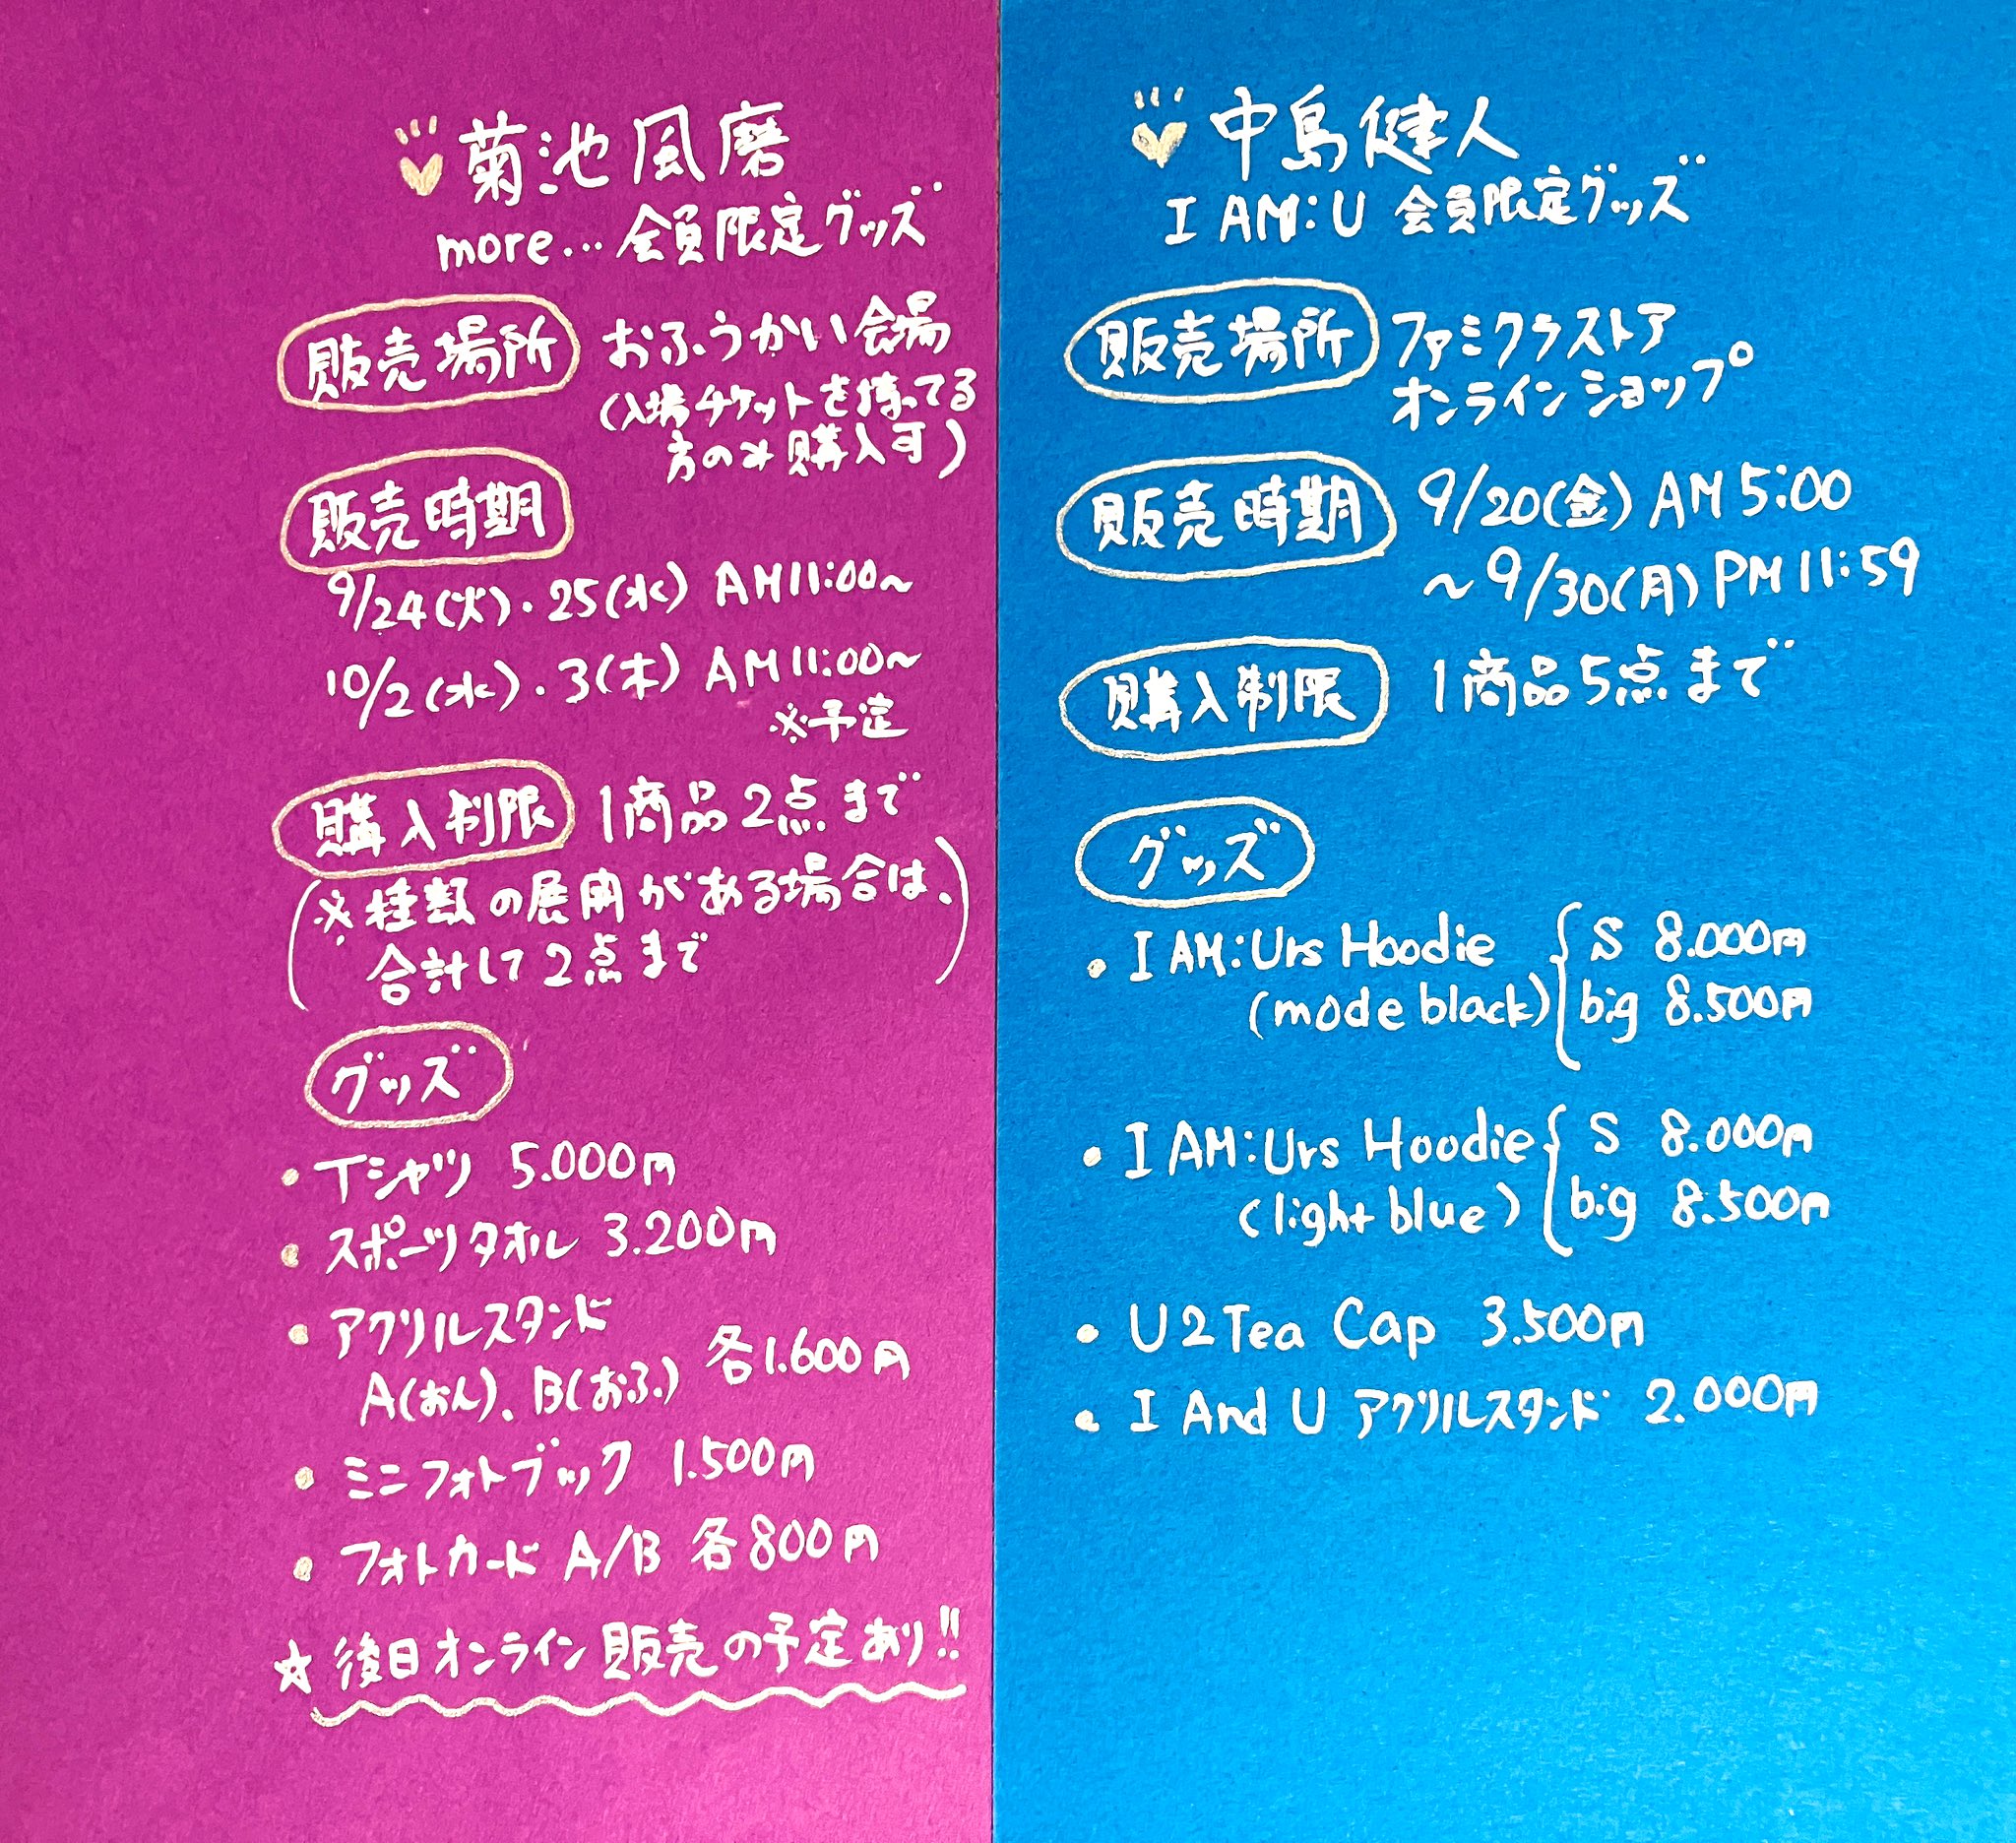 菊池風磨
more... 会員限定グッズ
販売場所 おふうかい会場
(入場チケットを持ってる
方のみ購入可)
販売時期
9/24(火)・25(水) AM11:00〜
10/2(水)・3(木) AM11:00〜
※予定
購入制限 1商品2点まで
(※種類の展開がある場合は、
合計して2点まで)
グッズ
・Tシャツ 5.000円
・スポーツタオル 3.200円
・アクリルスタンド
A(おん)、B(おふ) 各1.600円
・ミニフォトブック 1.500円
・フォトカード A/B 各800円
☆後日オンライン販売の予定あり!!
中島健人
I AM:U 会員限定グッズ
販売場所 ファミクラストア
オンラインショップ
販売時期 9/20(金) AM5:00
〜9/30(月) PM11:59
購入制限 1商品5点まで
グッズ
・I AM:Urs Hoodie { S 8.000円
(mode black) big 8.500円
・I AM:Urs Hoodie { S 8.000円
(light blue) big 8.500円
・U2Tea Cap 3.500円
・I And U アクリルスタンド 2.000円